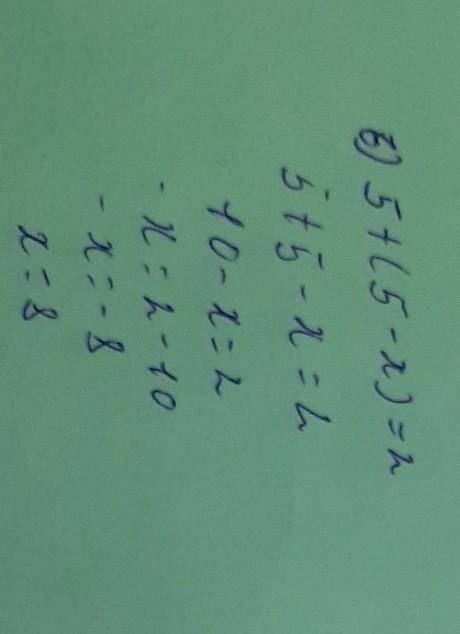 б) 5+(5-x)=2
5+5-x=2
10-x=2
-x=2-10
-x=-8
x=8